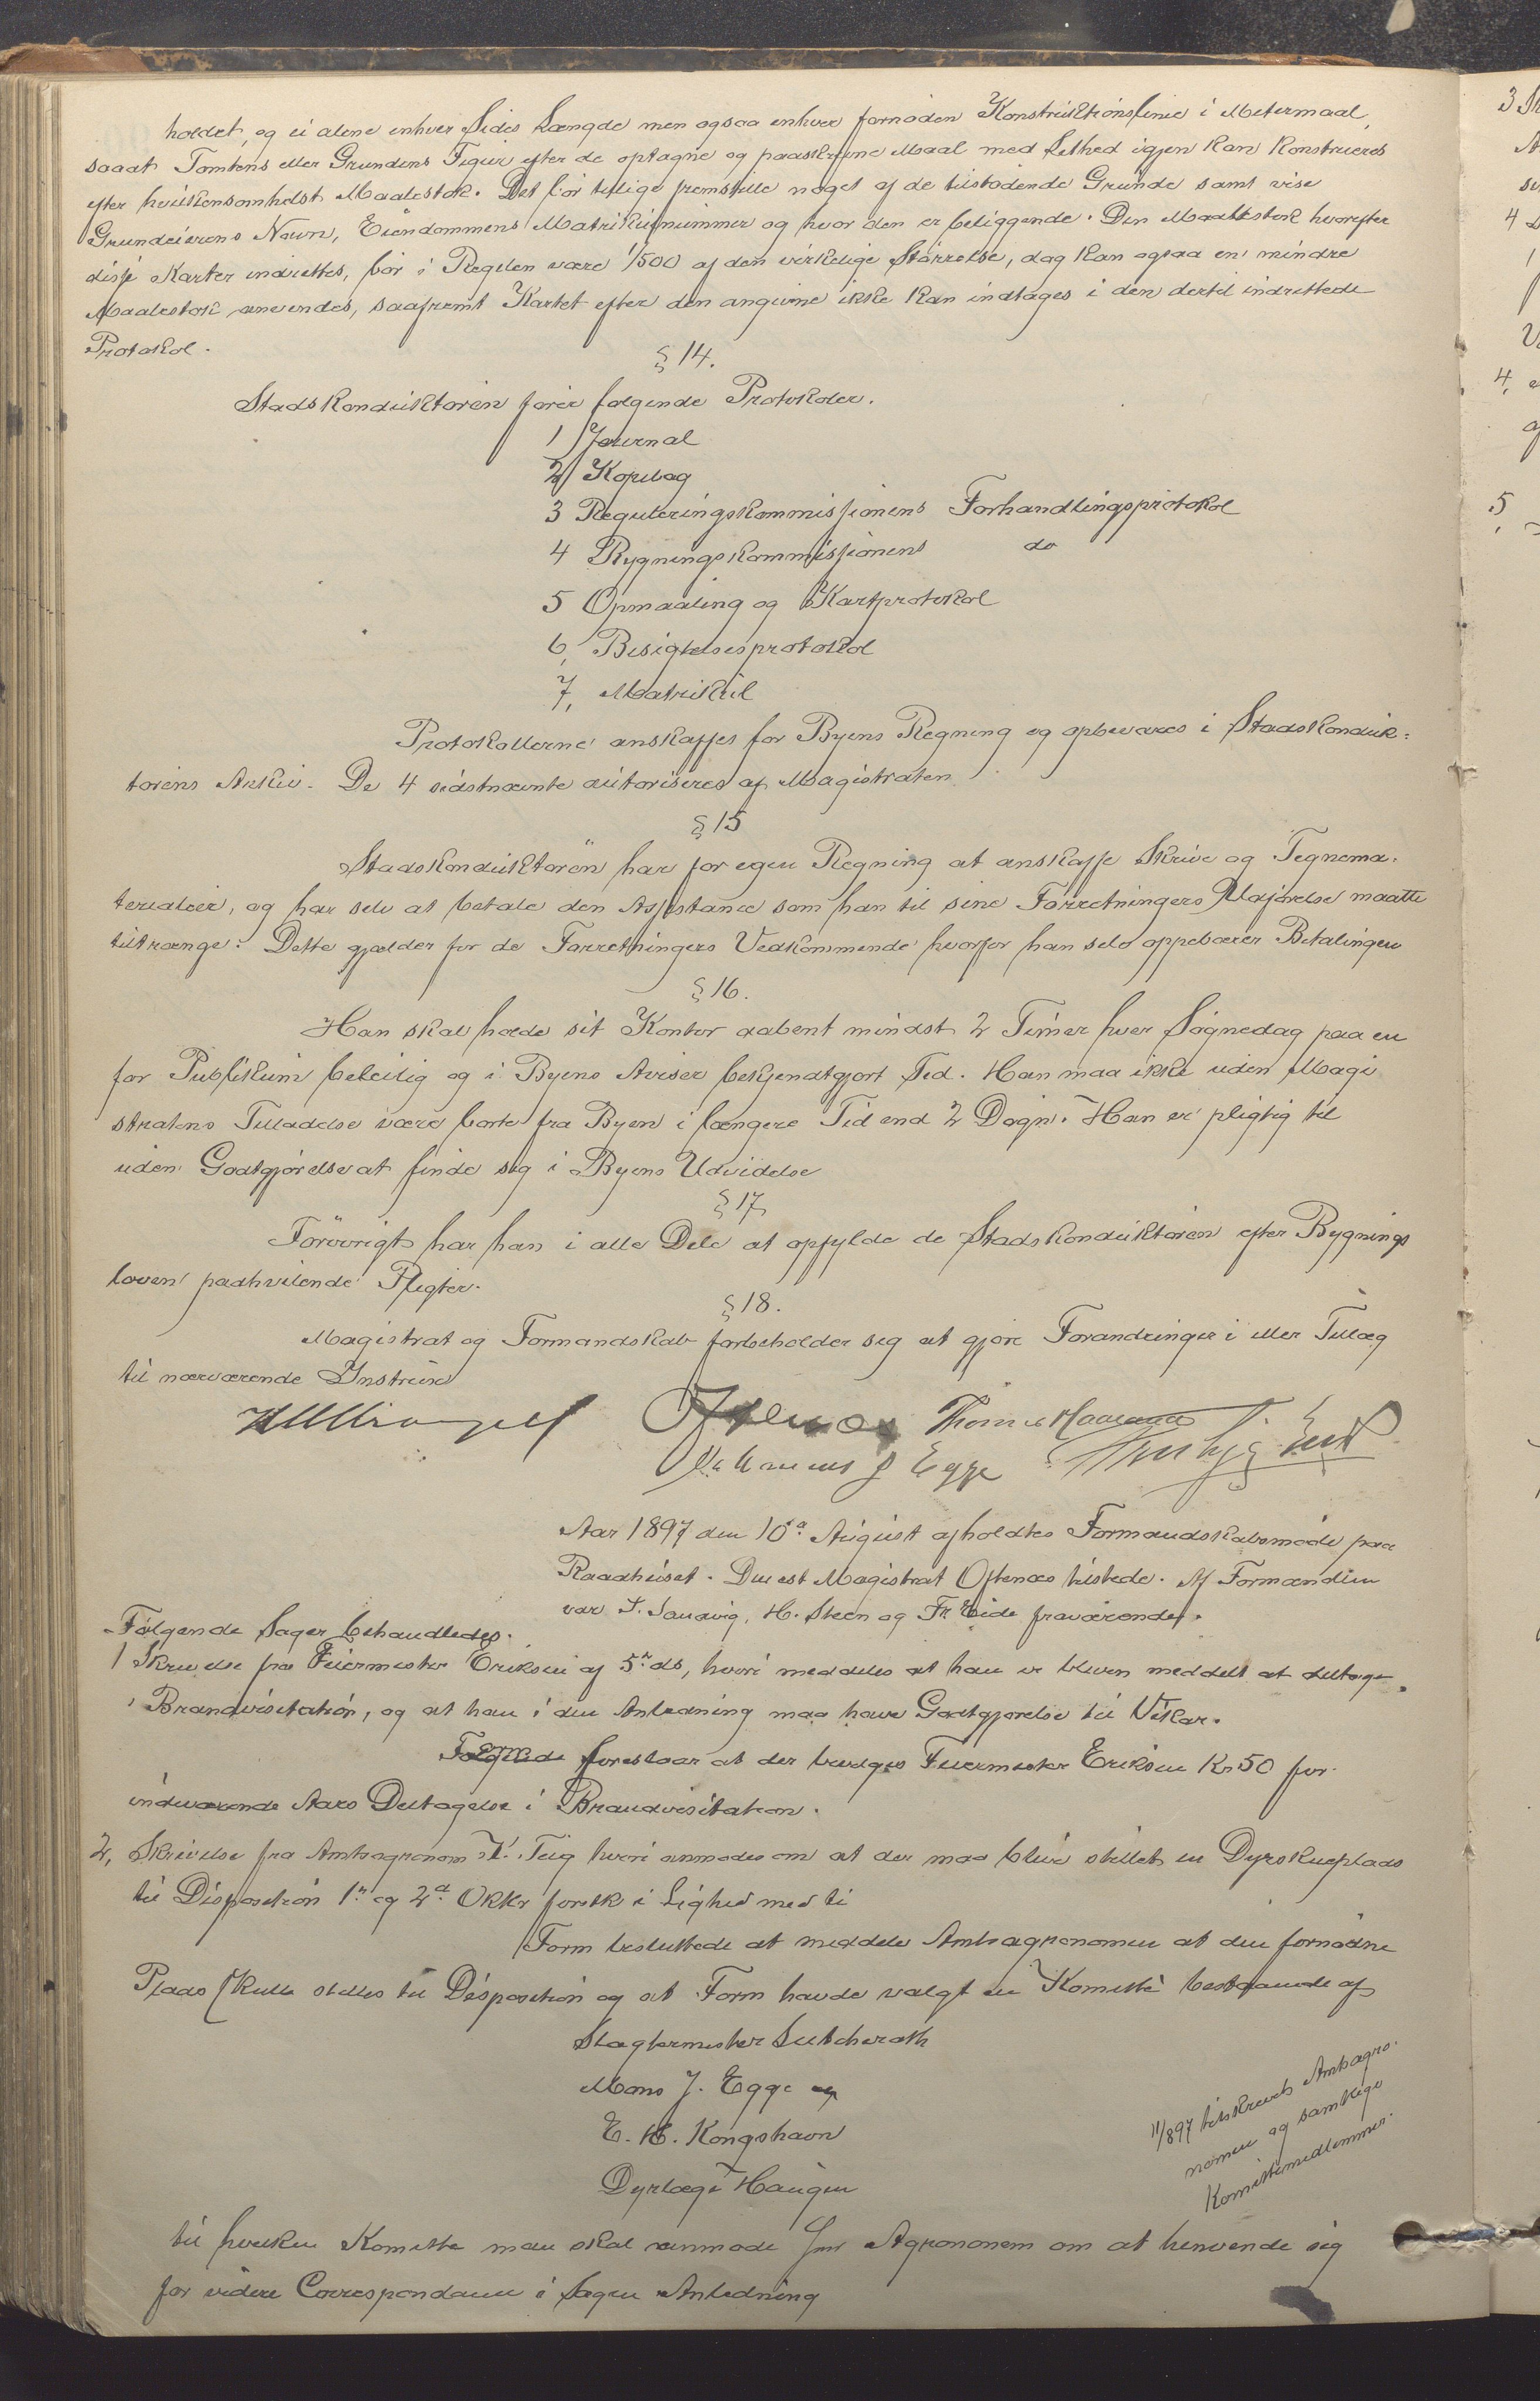 holdet, og ei alene enhver Sides Længde men ogsaa enhver fornøden Konstruktionslinie i Metermaal,
saaat Tomtens eller Grundens Figur efter de optagne og paaskrevne Maal med Lethed igjen kan Konstrueres
efter hvilkensomhelst Maalestok. Det bør tillige fremstille noget af de tilstødende Grunde samt vise
Grundeierens Navn, Eiendommens Matrikulnummer og hvor den er beliggende. Den Maalestok hvorefter
disse Karter indrettes, bør i Regelen være 1/500 af den virkelige Størrelse, dog kan ogsaa en mindre
Maalestok anvendes, saafremt Kartet efter den angivne ikke kan indtages i den dertil indrettede
Protokol.
§ 14.
Stadskonduktøren fører følgende Protokoler.
1 Journal
2 Kopibog
3 Reguleringskommissionens Forhandlingsprotokol
4 Bygningskommissionens do
5 Opmaaling og Kartprotokol
6, Besigtelsesprotokol
7, Matrikul
Protokollerne anskaffes for Byens Regning og opbevares i Stadskonduk-
tørens Arkiv. De 4 sidstnævnte autoriseres af Magistraten.
§ 15
Stadskonduktøren har for egen Regning at anskaffe Skrive og Tegnema-
terialier, og har selv at betale den Assistance som han til sine Forretningers Udførelse maatte
tiltrænge. Dette gjælder for de Forretningers Vedkommende hvorfor han selv oppebærer Betalingen
§ 16.
Han skal holde sit Kontor aabent mindst 2 Timer hver Søgnedag paa en
for Publikum beleilig og i Byens Aviser bekjendtgjort Tid. Han maa ikke uden Magi
stratens Tilladelse være borte fra Byen i længere Tid end 2 Døgn. Han er pligtig til
uden Godtgjørelse at finde sig i Byens Udvidelse
§ 17,
Forøvrigt har han i alle Dele at opfylde de Stadskonduktøren efter Bygnings
loven paahvilende Pligter.
§ 18.
Magistrat og Formandskab forbeholder sig at gjøre Forandringer i eller Tillæg
til nærværende Instrux
Oftenæs
Egge
Aar 1897 den 10de August afholdtes Formandskabsmøde paa
Raadhuset. Const Magistrat Oftenæs tilstede. Af Formændene
var J. Sandvig, H. Steen og Fr. Eide fraværende.
Følgende Sager behandledes.
1 Skrivelse fra Feiermester Eriksen af 5te ds, hvori meddeles at han er bleven meddelt at deltage
i Brandvisitation, og at han i den Anledning maa have Godtgjørelse til Vikar.
Form foreslaar at der bevilges Feiermester Eriksen Kr 50 for
indeværende Aars Deltagelse i Brandvisitation.
2, Skrivelse fra Amtsagronom K. Teig hvori anmodes om at der maa blive stillet en Dyrskueplads
til Disposition 1ste og 2den Oktbr førstk i Lighed med ti
Form besluttede at meddele Amtsagronomen at den fornødne
Plads skulle stilles til Disposition og at Form havde valgt en Komitte bestaaende af
Slagtermester Lutcherath
Mons J. Egge og
E. H. Kongshavn
Dyrlæge Haugen
11/897 tilskrevet Amtsagro-
nomen og samtlige
Komittemedlemmer.
til hvilken Komitte man skal anmode Hrr Agrononem om at henvende sig
for videre Correspondance i Sagens Anledning